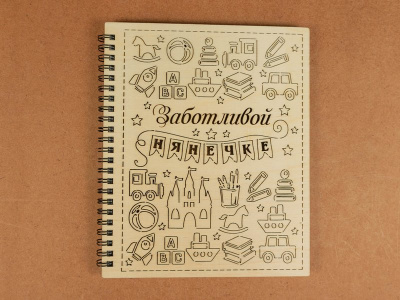 A
BC
Заботливой
НЯНЕЧКЕ
A
BC